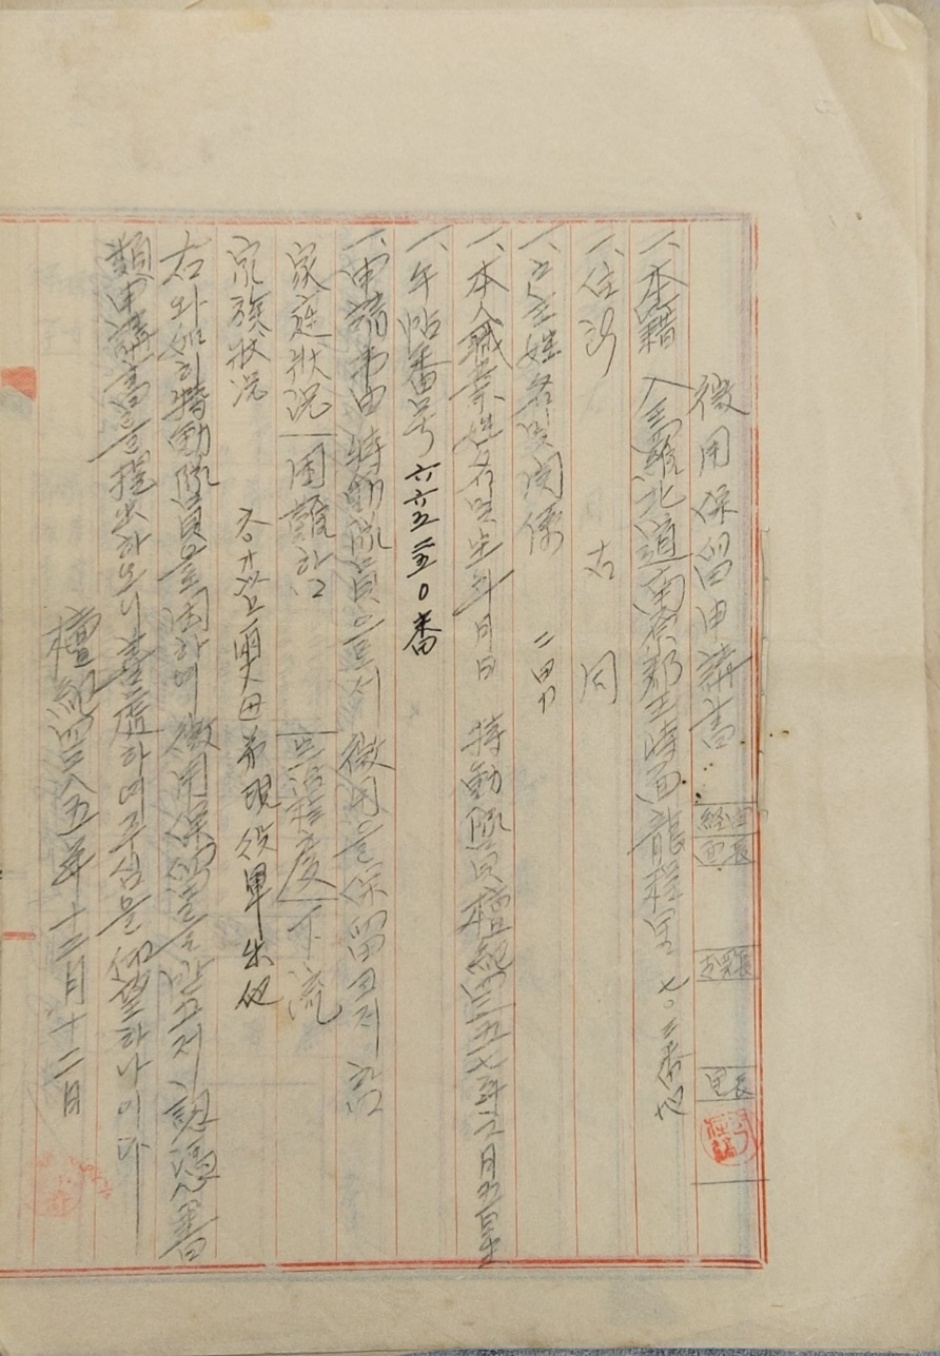 徴用保留申請書
経由
面長
里長
一、本籍 全羅北道南原郡王峙面龍程里七〇三番地
一、住所 右同
一、戶主姓名및関係 二男
一、本人職業姓名및生年月日 特動隊員檀紀四二五七年二月九日生
一、年帖番号 六六五三五〇番
一、申請事由 特動隊員으로서 徴用을保留코저 함
家庭狀況 困難함 生活程度 下流
家族狀況 現役軍出征
右와如히特動隊員을因하여徴用保留를받고저 証憑書
類申請書를提出하오니 하여주심을仰望하나이다
檀紀四二八五年十二月十二日